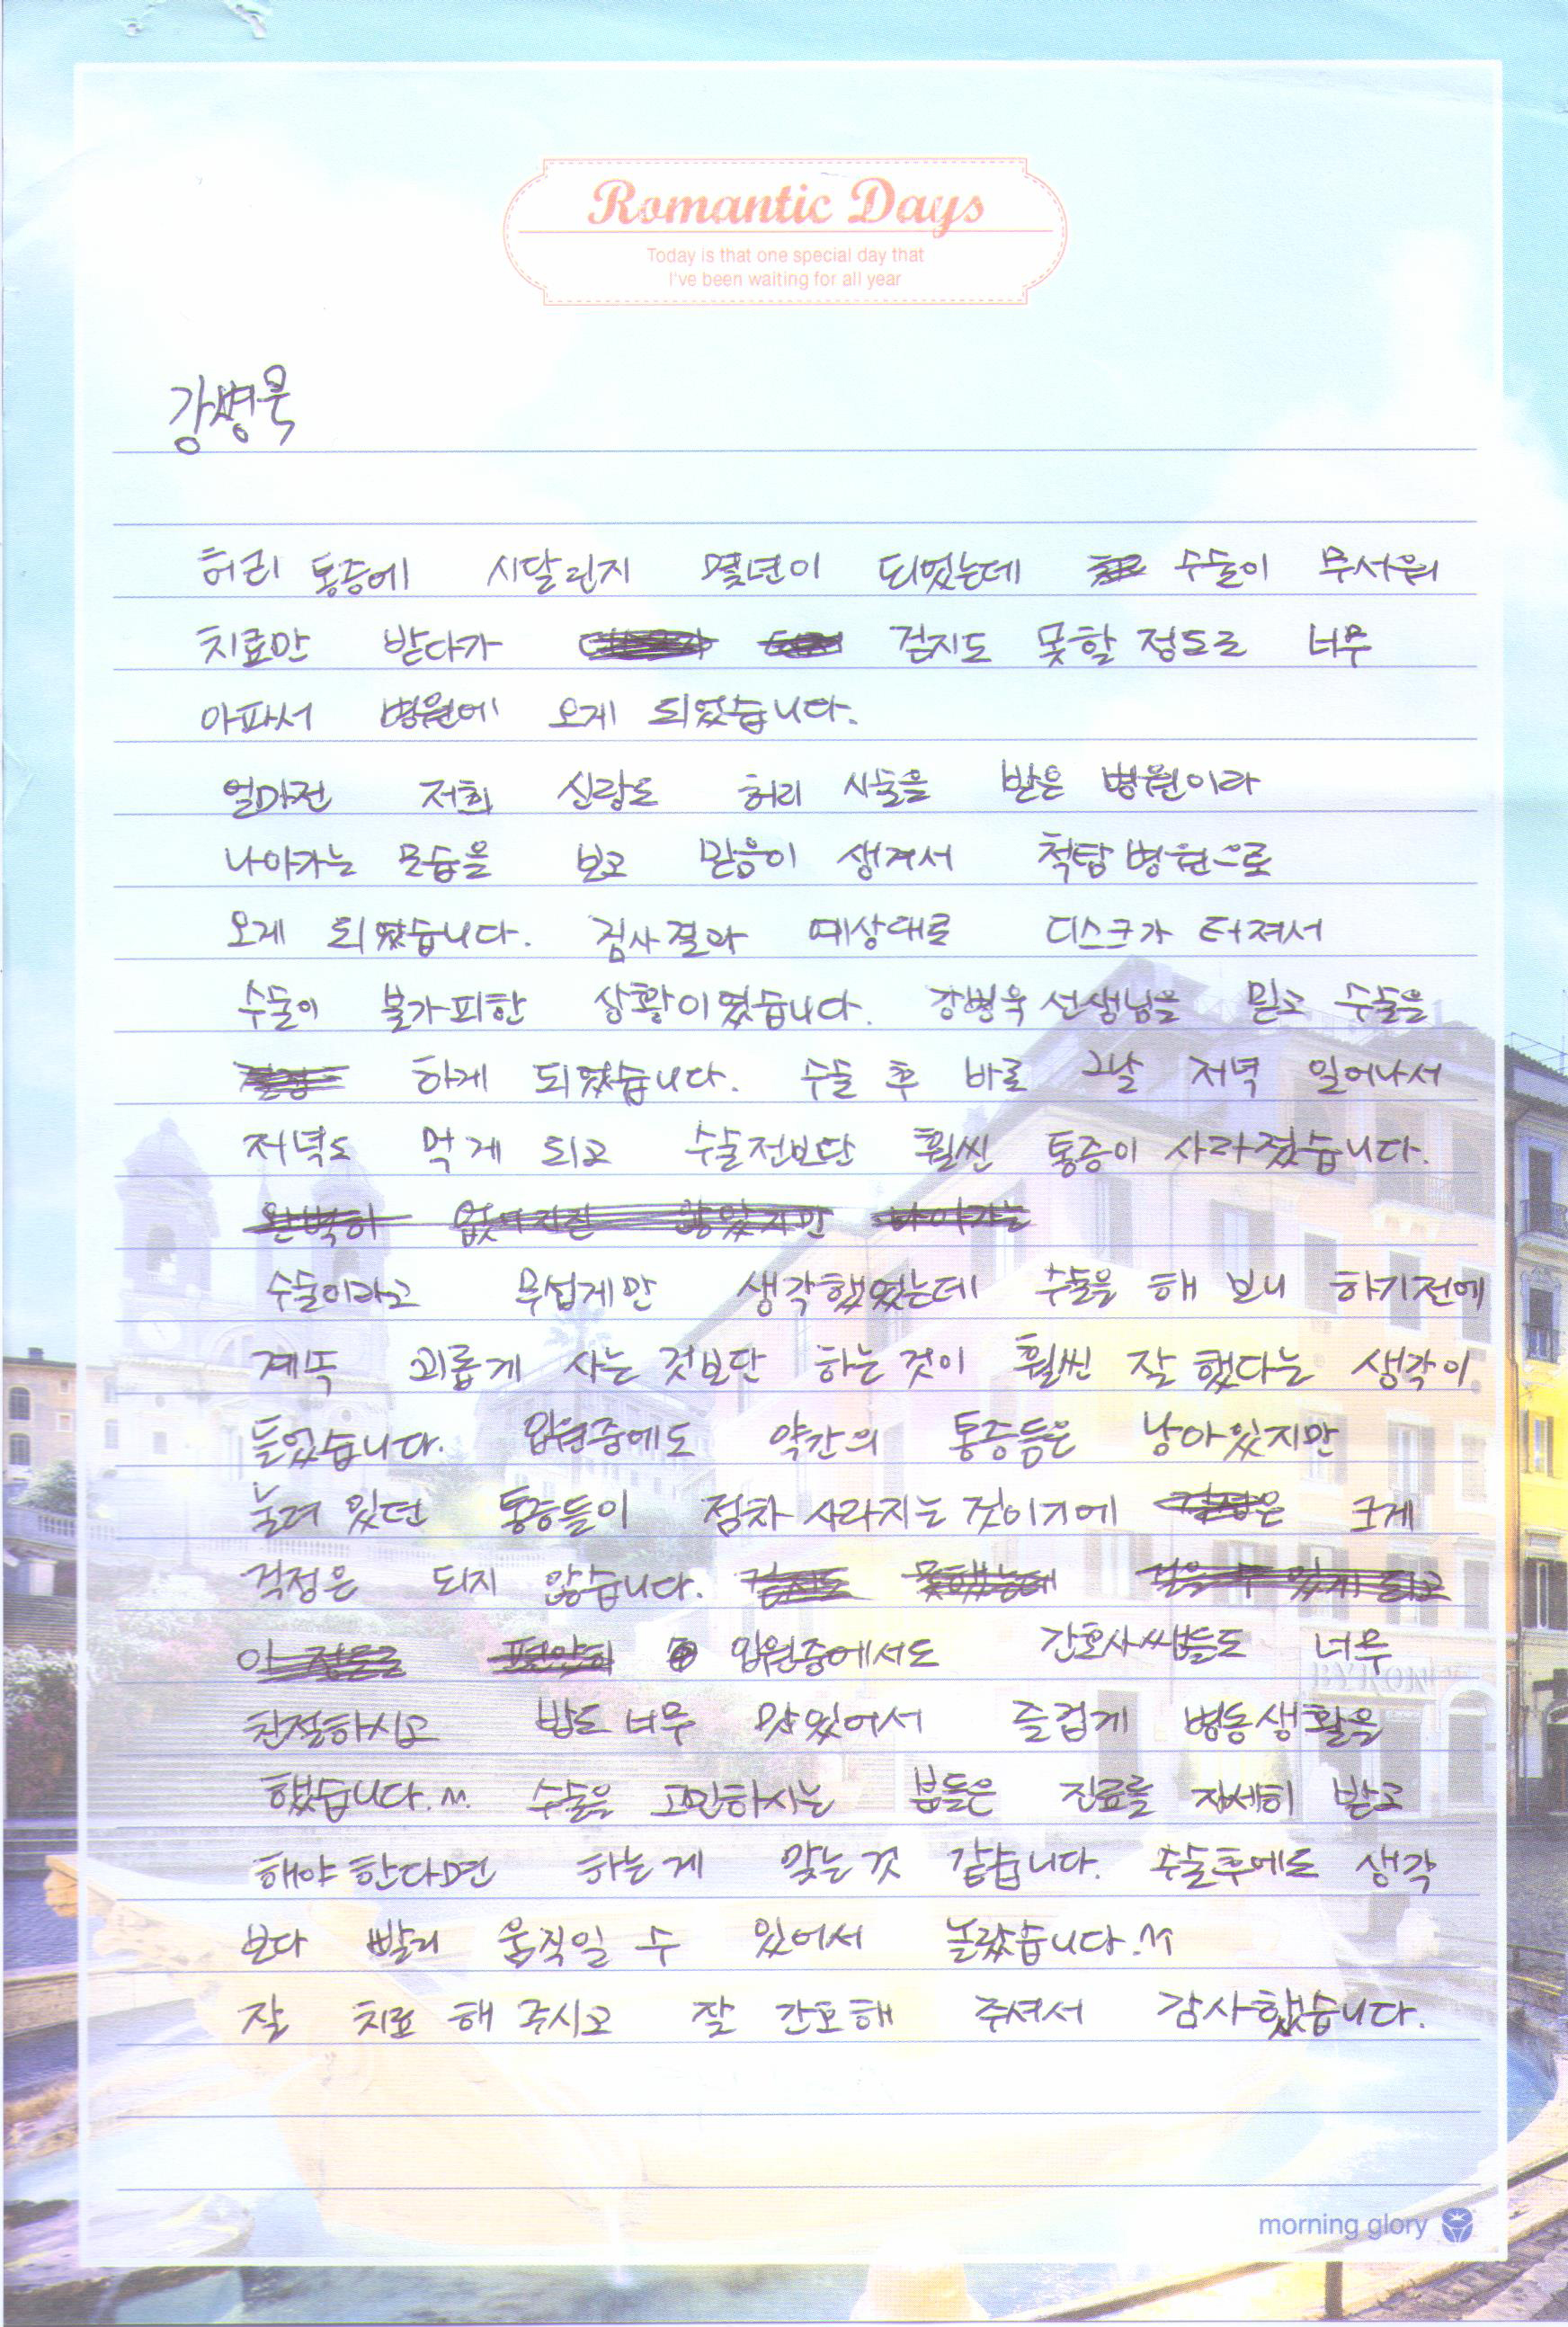 Romantic Days
Today is that one special day that
I've been waiting for all year
강병욱
허리 통증에 시달린지 몇년이 되었는데 수술이 무서워
치료만 받다가 걷지도 못할 정도로 너무
아파서 병원에 오게 되었습니다.
얼마전 저희 신랑도 허리 시술을 받은 병원이라
나아가는 모습을 보고 믿음이 생겨서 척탑병원으로
오게 되었습니다. 검사결과 예상대로 디스크가 터져서
수술이 불가피한 상황이였습니다. 강병욱 선생님을 믿고 수술을
하게 되었습니다. 수술 후 바로 그날 저녁 일어나서
저녁도 먹게 되고 수술전보단 훨씬 통증이 사라졌습니다.
완벽히 없어지진 않았지만 나아가는
수술이라고 무섭게만 생각했었는데 수술을 해 보니 하기전에
계속 괴롭게 사는 것보단 하는것이 훨씬 잘 했다는 생각이
들었습니다. 입원중에도 약간의 통증등은 남아있지만
눌려 있던 통증들이 점차 사라지는 것이기에 크게
걱정은 되지 않습니다. 걷지도 못했는데 걸을 수 있게 되고
입원중에서도 간호사쌤들도 너무
친절하시고 밥도 너무 맛있어서 즐겁게 병동생활을
했습니다.^^. 수술을 고민하시는 분들은 진료를 자세히 받고
해야한다면 하는게 맞는것 같습니다. 수술후에도 생각
보다 빨리 움직일 수 있어서 놀랐습니다.^^
잘 치료 해 주시고 잘 간호해 주셔서 감사했습니다.
morning glory